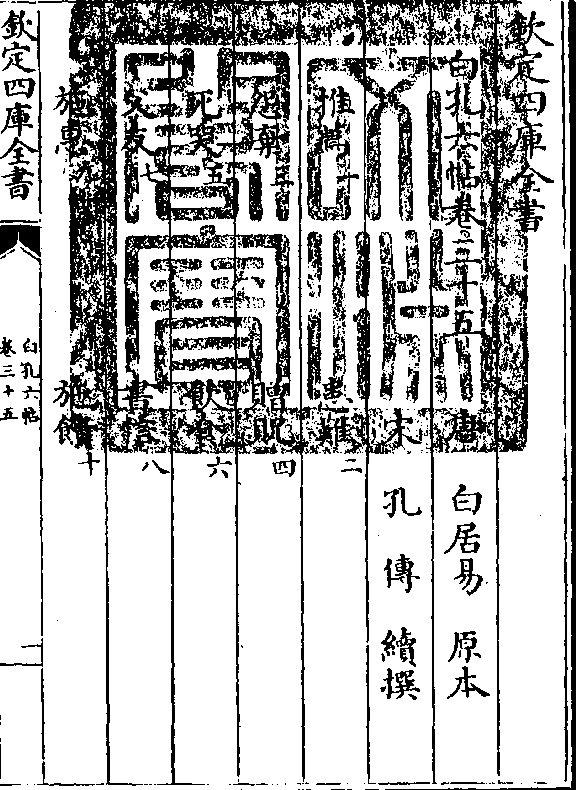 欽定四庫全書
白孔六帖卷三十五
唐 白居易 原本
宋 孔傳 續撰
推薦一 患難二
三 贈貺四
五 六
七 八
施惠九 十
欽定四庫全書
白孔六帖
卷三十五
一
文淵閣寶